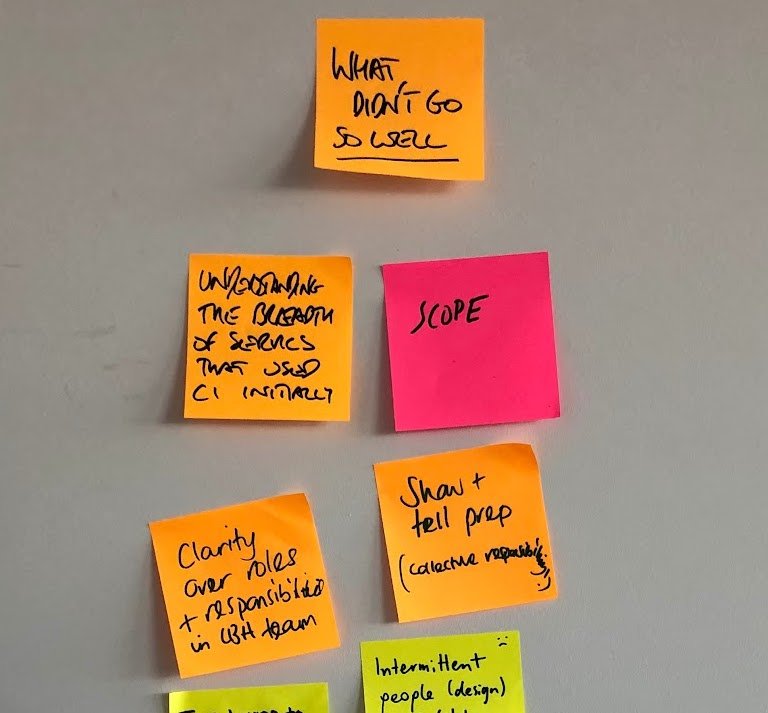 WHAT
DIDN'T GO
SO WELL
UNDERSTANDING
THE BREADTH
OF SERVICES
THAT USED
CI INITIALLY
SCOPE
Show +
tell prep
(collective
Clarity
over roles
+ responsibilities
in team
Intermittent
people (design)